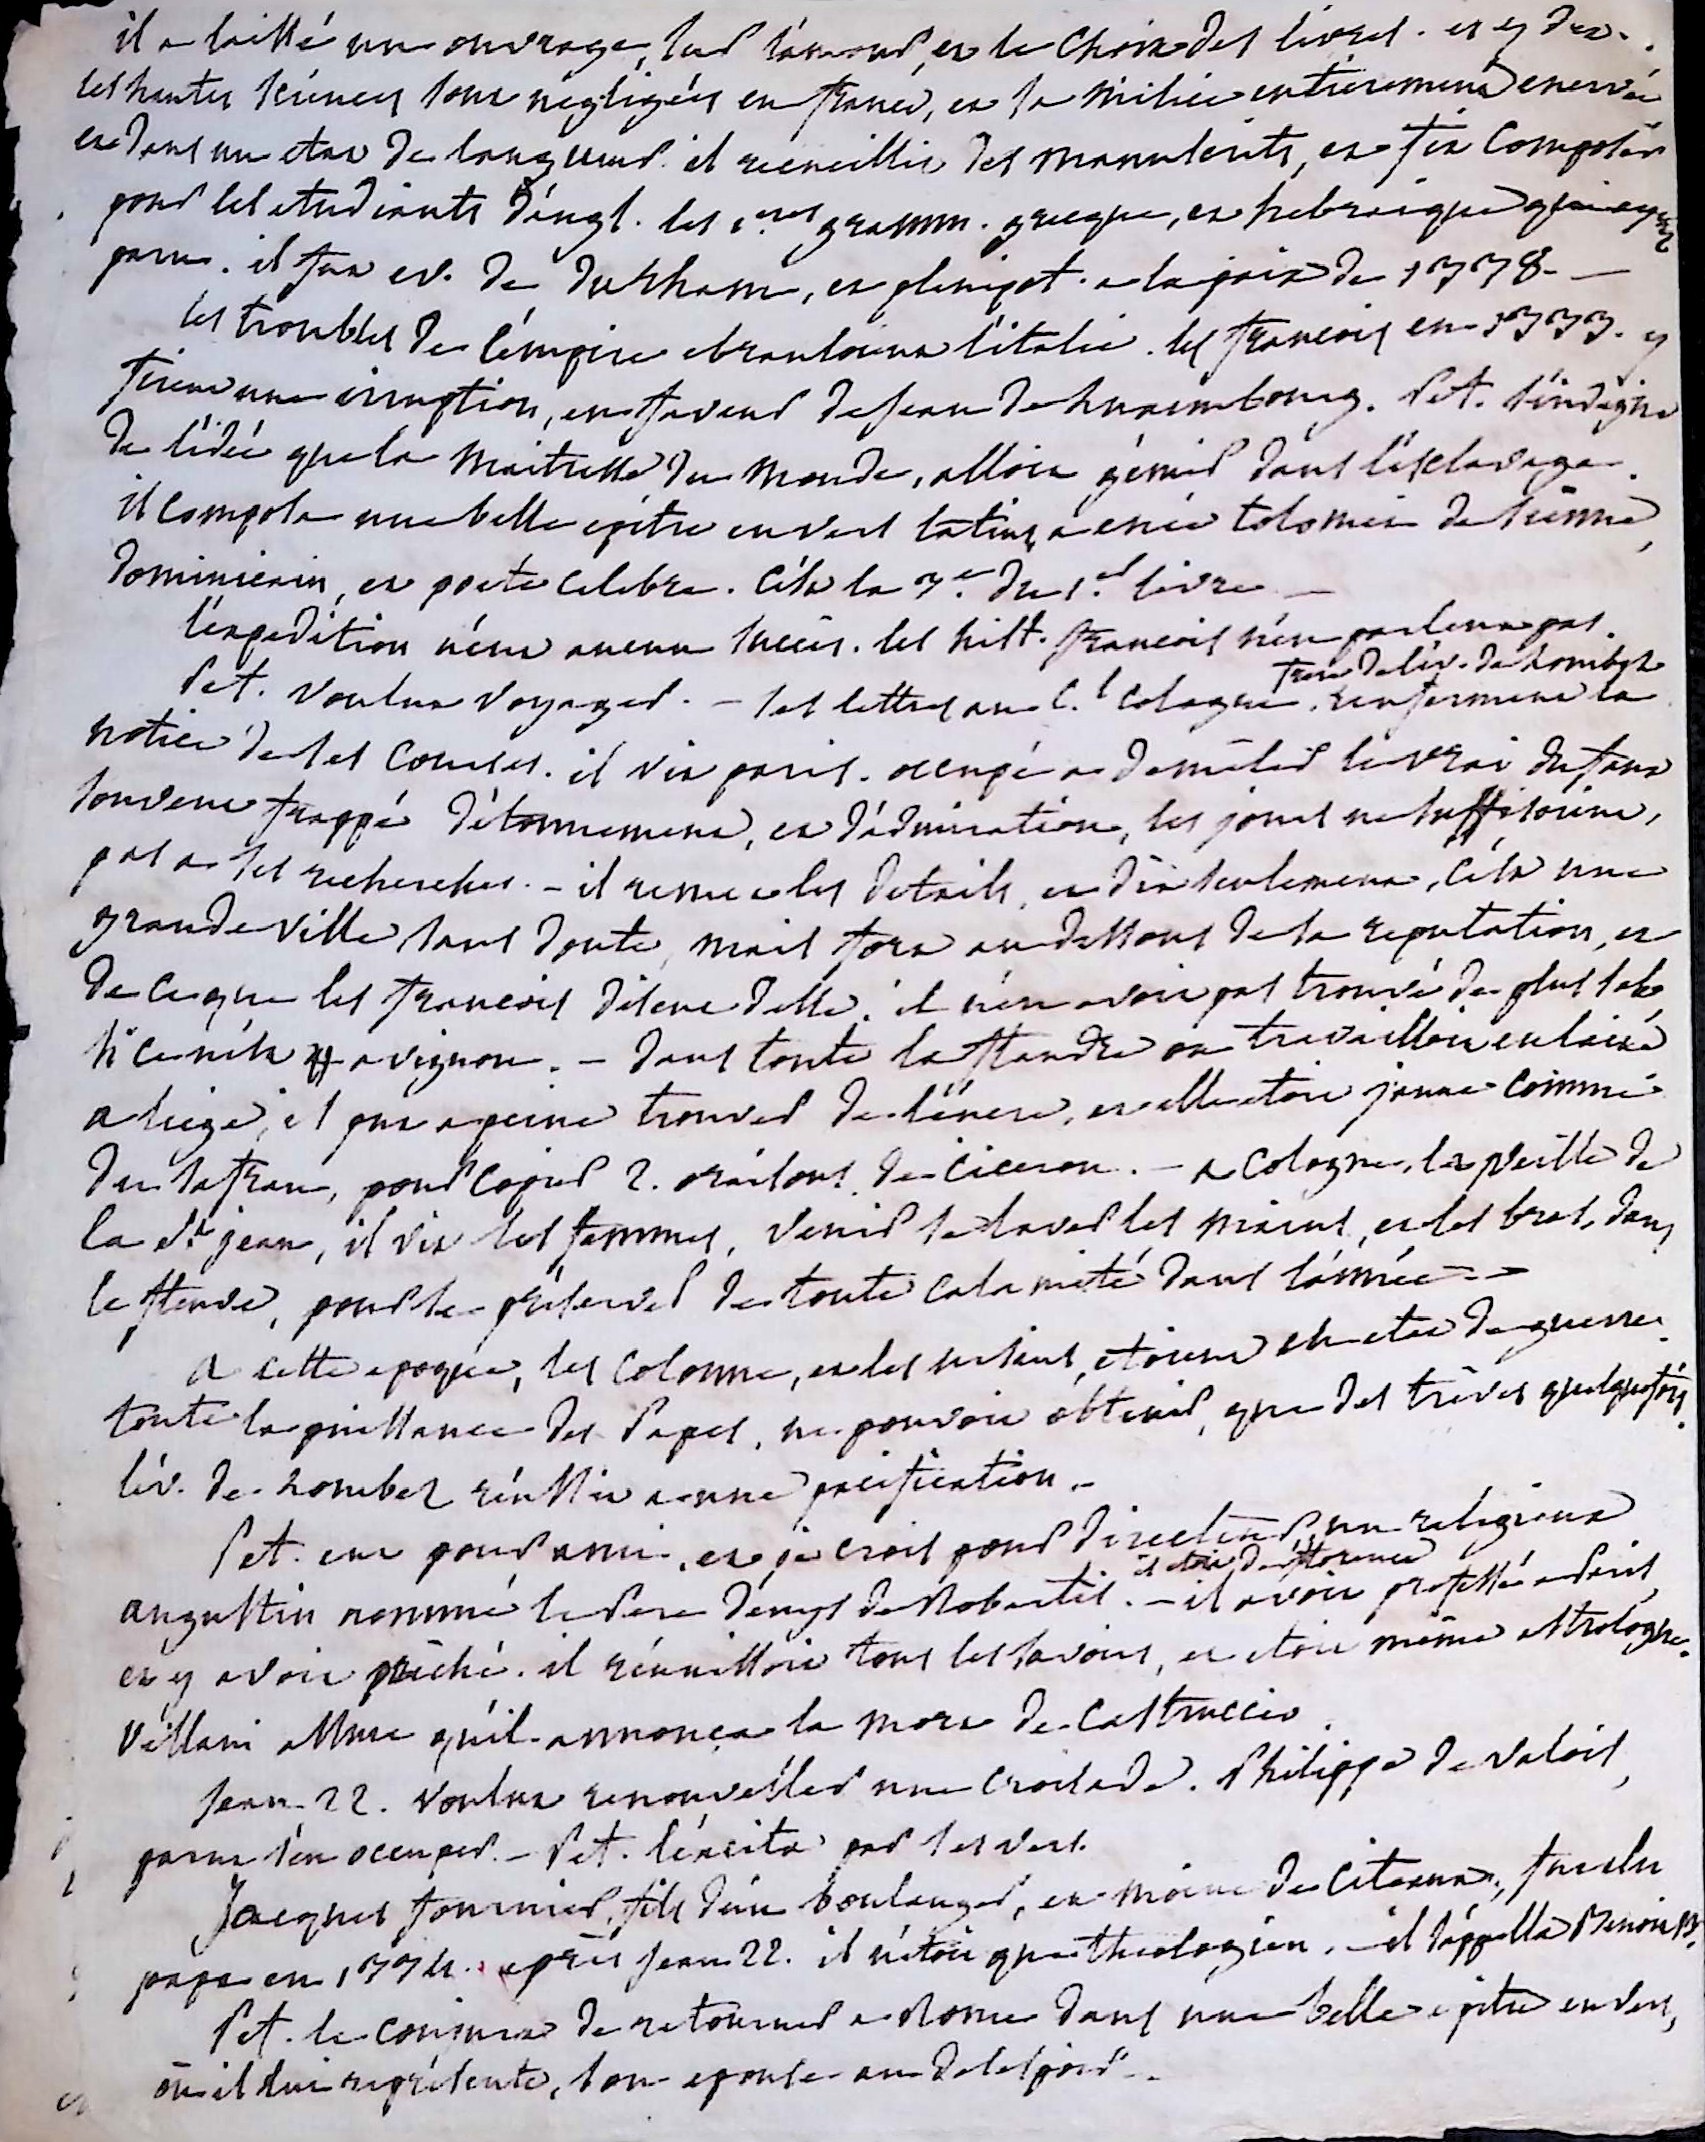 il a laissé un ouvrage, sur l'amour, et le choix des livres. et y dit.
les hautes sciences sont négligées en france, et sa milice entièrement enervée
et dans un etat de langueur. il recueillit des manuscrits, et fit composer
pour les etudiants d'angl. les 1.eres gramm. grecque, et hebraique qui ayent
paru. il fut ev. de durham, et plenipot. a la paix de 1338. —
les troubles de l'empire ebranloient l'italie. les francois en 1333. y
firent une irruption, en faveur de jean de Luxembourg. Pet. s'indigne
de l'idée que la maitresse du monde, alloit gémir dans l'esclavage.
il composa une belle epitre en vers latins a enée tolomei de sienne,
dominicain, et poete celebre. c'est la 3.e du 1.er livre —
l'expedition n'eut aucun succès. les hist. francois n'en parlent pas.
frere de l'ev. de Lombez
Pet. voulut voyager. — ses lettres au c.l Colonne, renferment la
notice de ses courses. il vit paris. occupé a demêler le vrai du faux
souvent frappé d'étonnement, et d'admiration, les jours ne suffisoient,
pas a ses recherches. — il remet les details, et dit seulement, c'est une
grande ville sans doute, mais fort au dessous de sa reputation, et
de ce que les francois disent d'elle. il n'en avoit pas trouvé de plus sale
si ce n'est avignon. — dans toute la flandre on travailloit en laine
a liege, il put a peine trouver de l'encre, et elle etoit jaune comme
du safran, pour copier 2. oraisons de Ciceron. — a Cologne, la veille de
la St jean, il vit les femmes, venir se laver les mains, et les bras, dans
le fleuve, pour se préserver de toute calamité dans l'année —
a cette epoque, les Colonne, et les ursins, etoient en etat de guerre.
toute la puissance des Papes, ne pouvoit obtenir, que des trèves quelquefois.
l'ev. de Lombez réussit a une pacification. —
Pet. eut pour ami, et je crois pour directeur, un religieux
il etoit de florence
augustin nommé le Pere Denys de Robertis. — il avoit professé a Paris
et y avoit prêché. il réunissoit tous les savoirs, et etoit même astrologue.
Villani assure qu'il annonça la mort de Castruccio
Jean 22. voulut renouveller une croisade. Philippe de valois,
parut s'en occuper. — Pet. l'excita par ses vers.
Jacques fournier, fils d'un boulanger, et moine de Citeaux, fut elu
pape en 1334. après Jean 22. il n'etoit que theologien. — il s'appella Benoist.
Pet. le conjura de retourner a Rome dans une belle epitre en vers,
où il lui représente, son epouse au desespoir. —